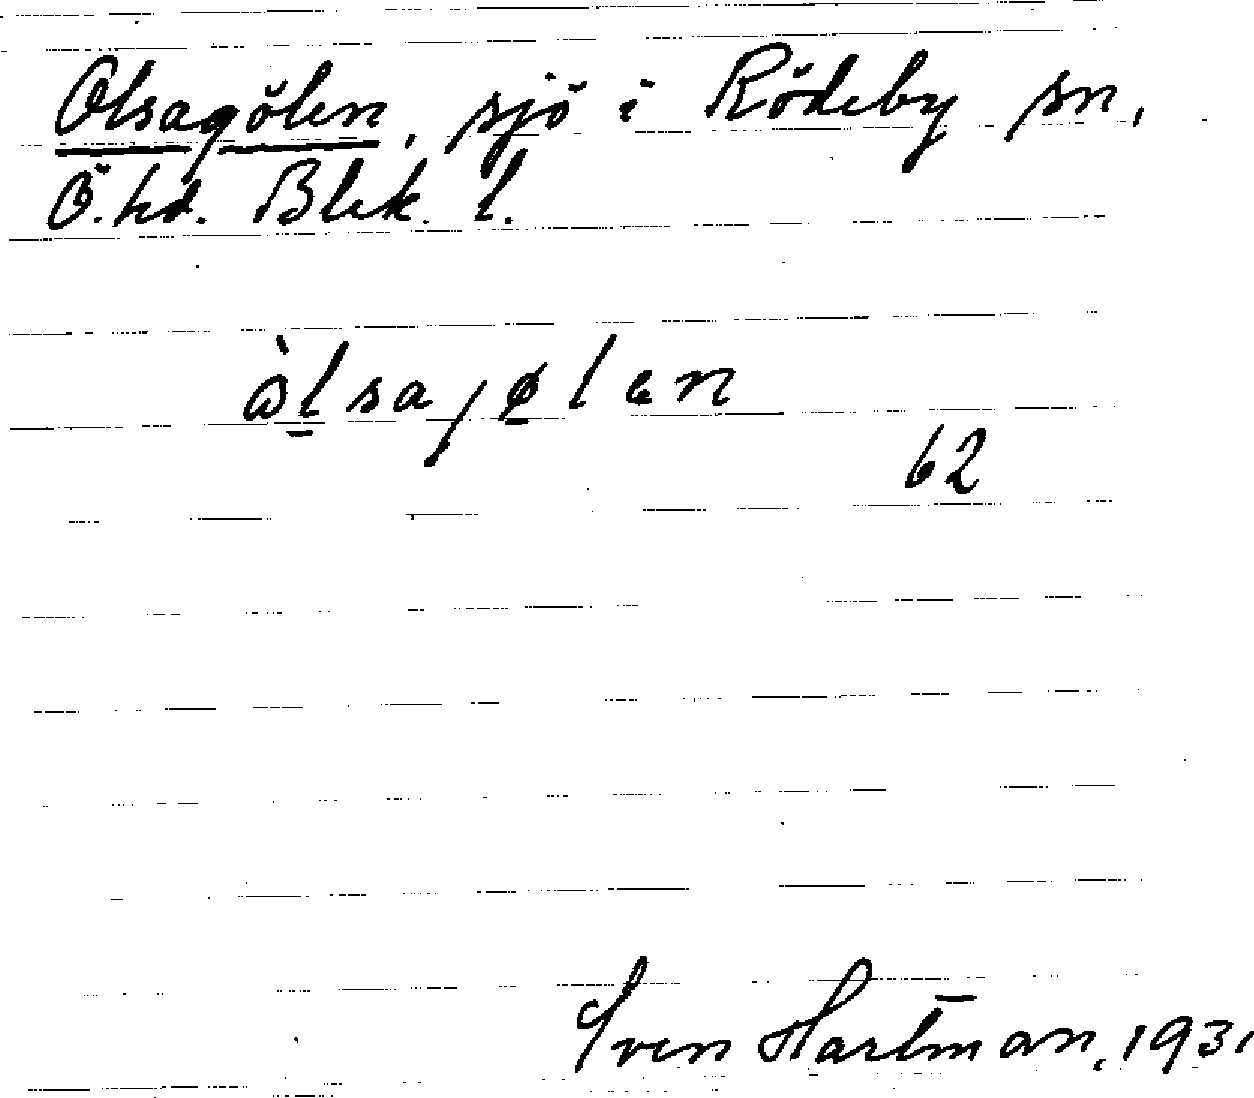 Olsagölen, sjö i Rödeby sn,
Ö. hd. Blek. l.
àlsajølen
62
Sven Hartman, 1931